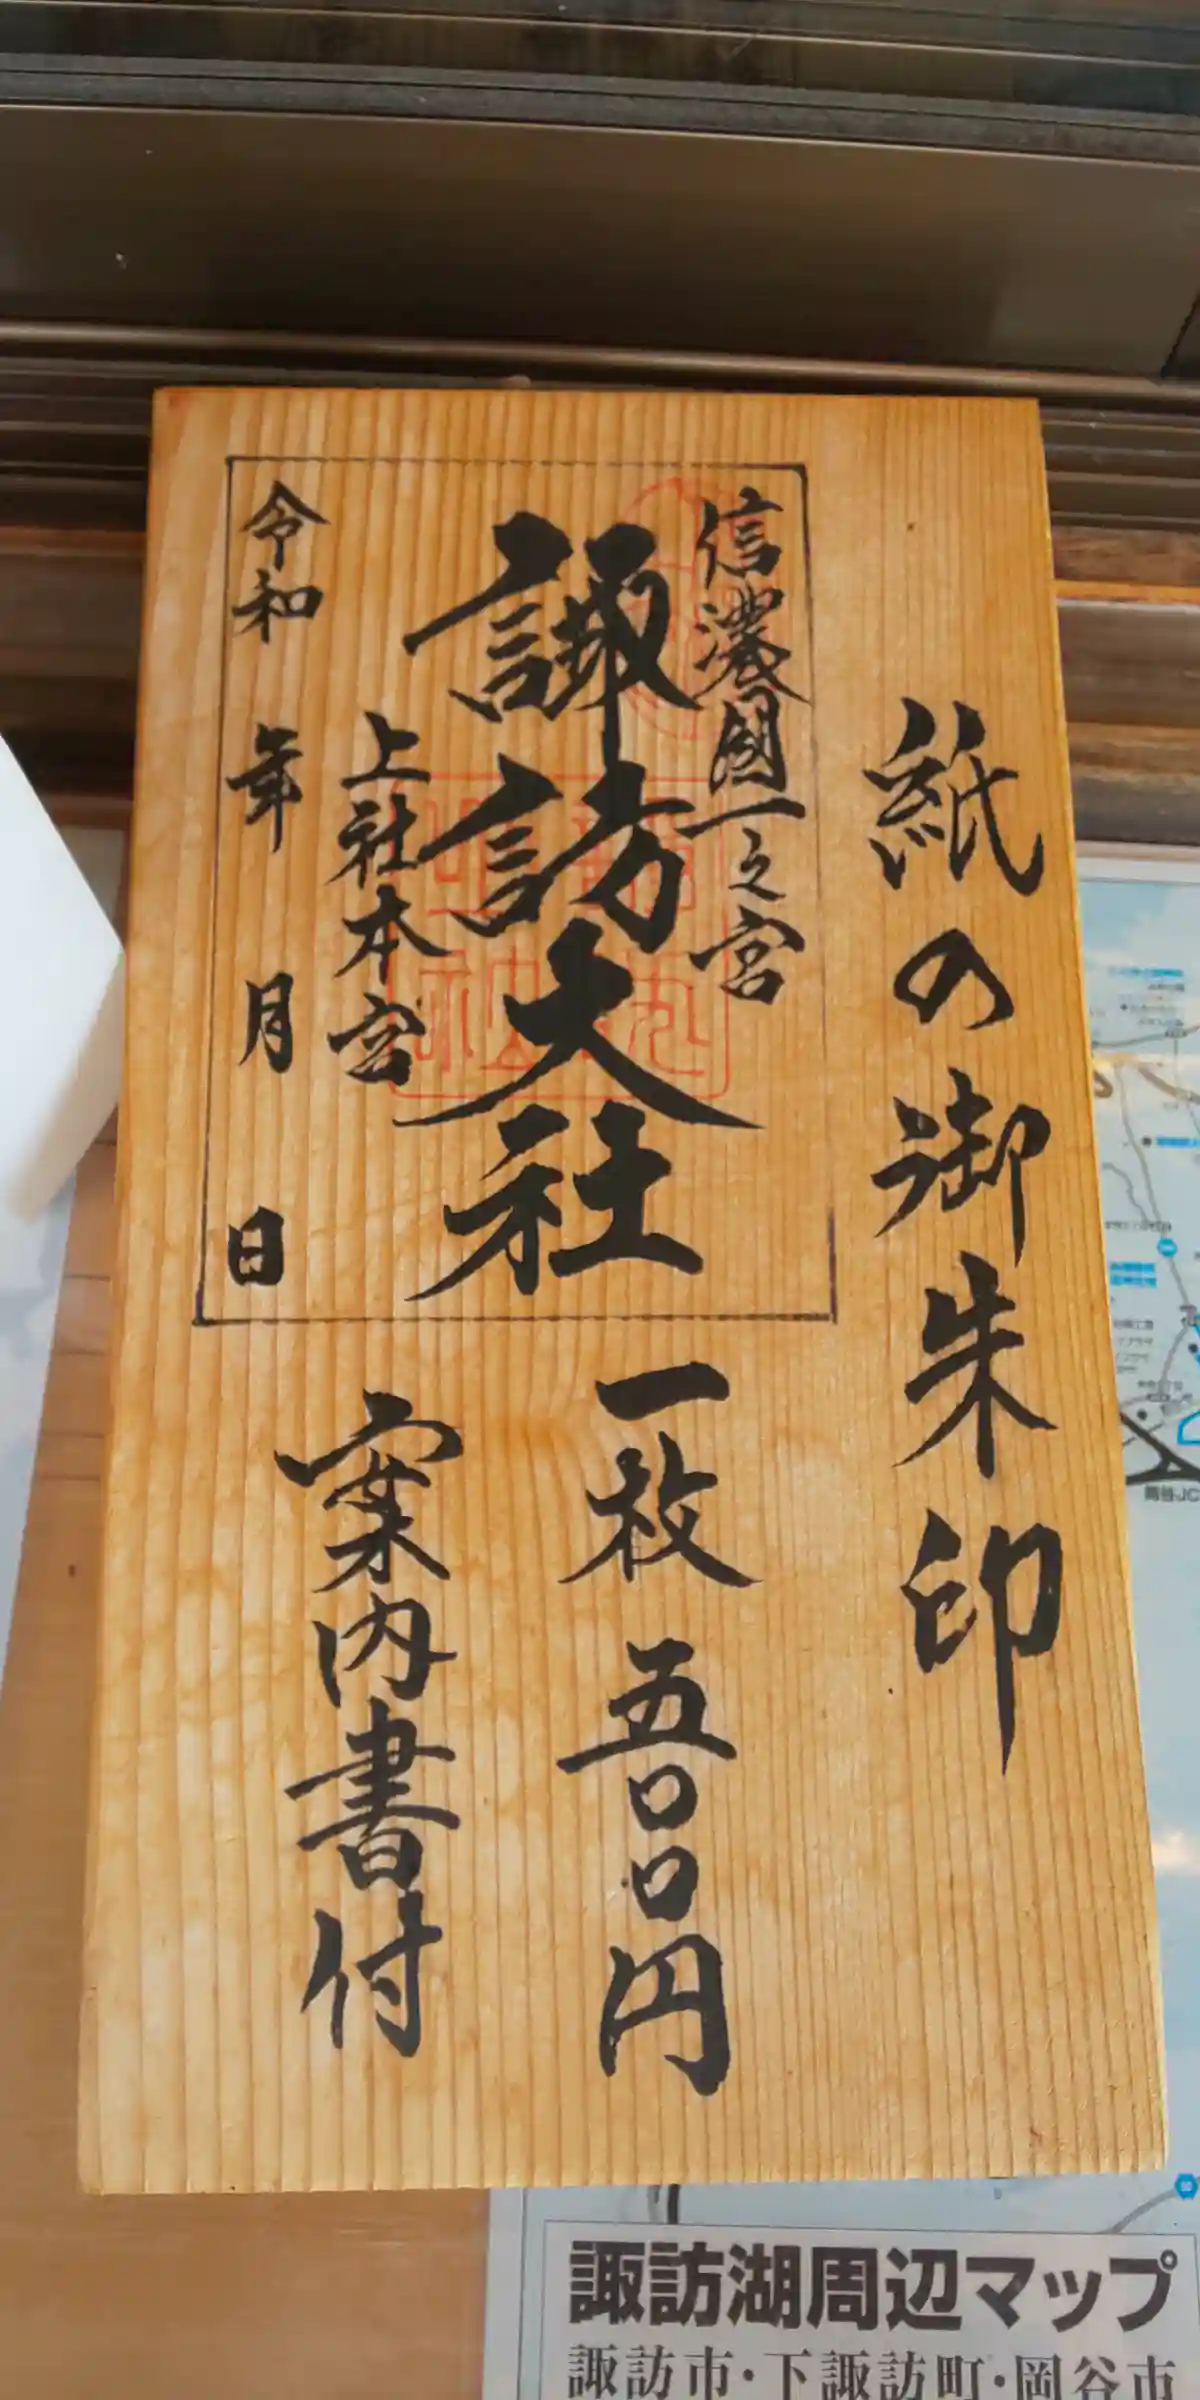 紙の御朱印
信濃國一之宮
諏訪大社
上社本宮
令和 年 月 日
一枚 五〇〇円
案内書付
諏訪湖周辺マップ
諏訪市・下諏訪町・岡谷市
岡谷JC